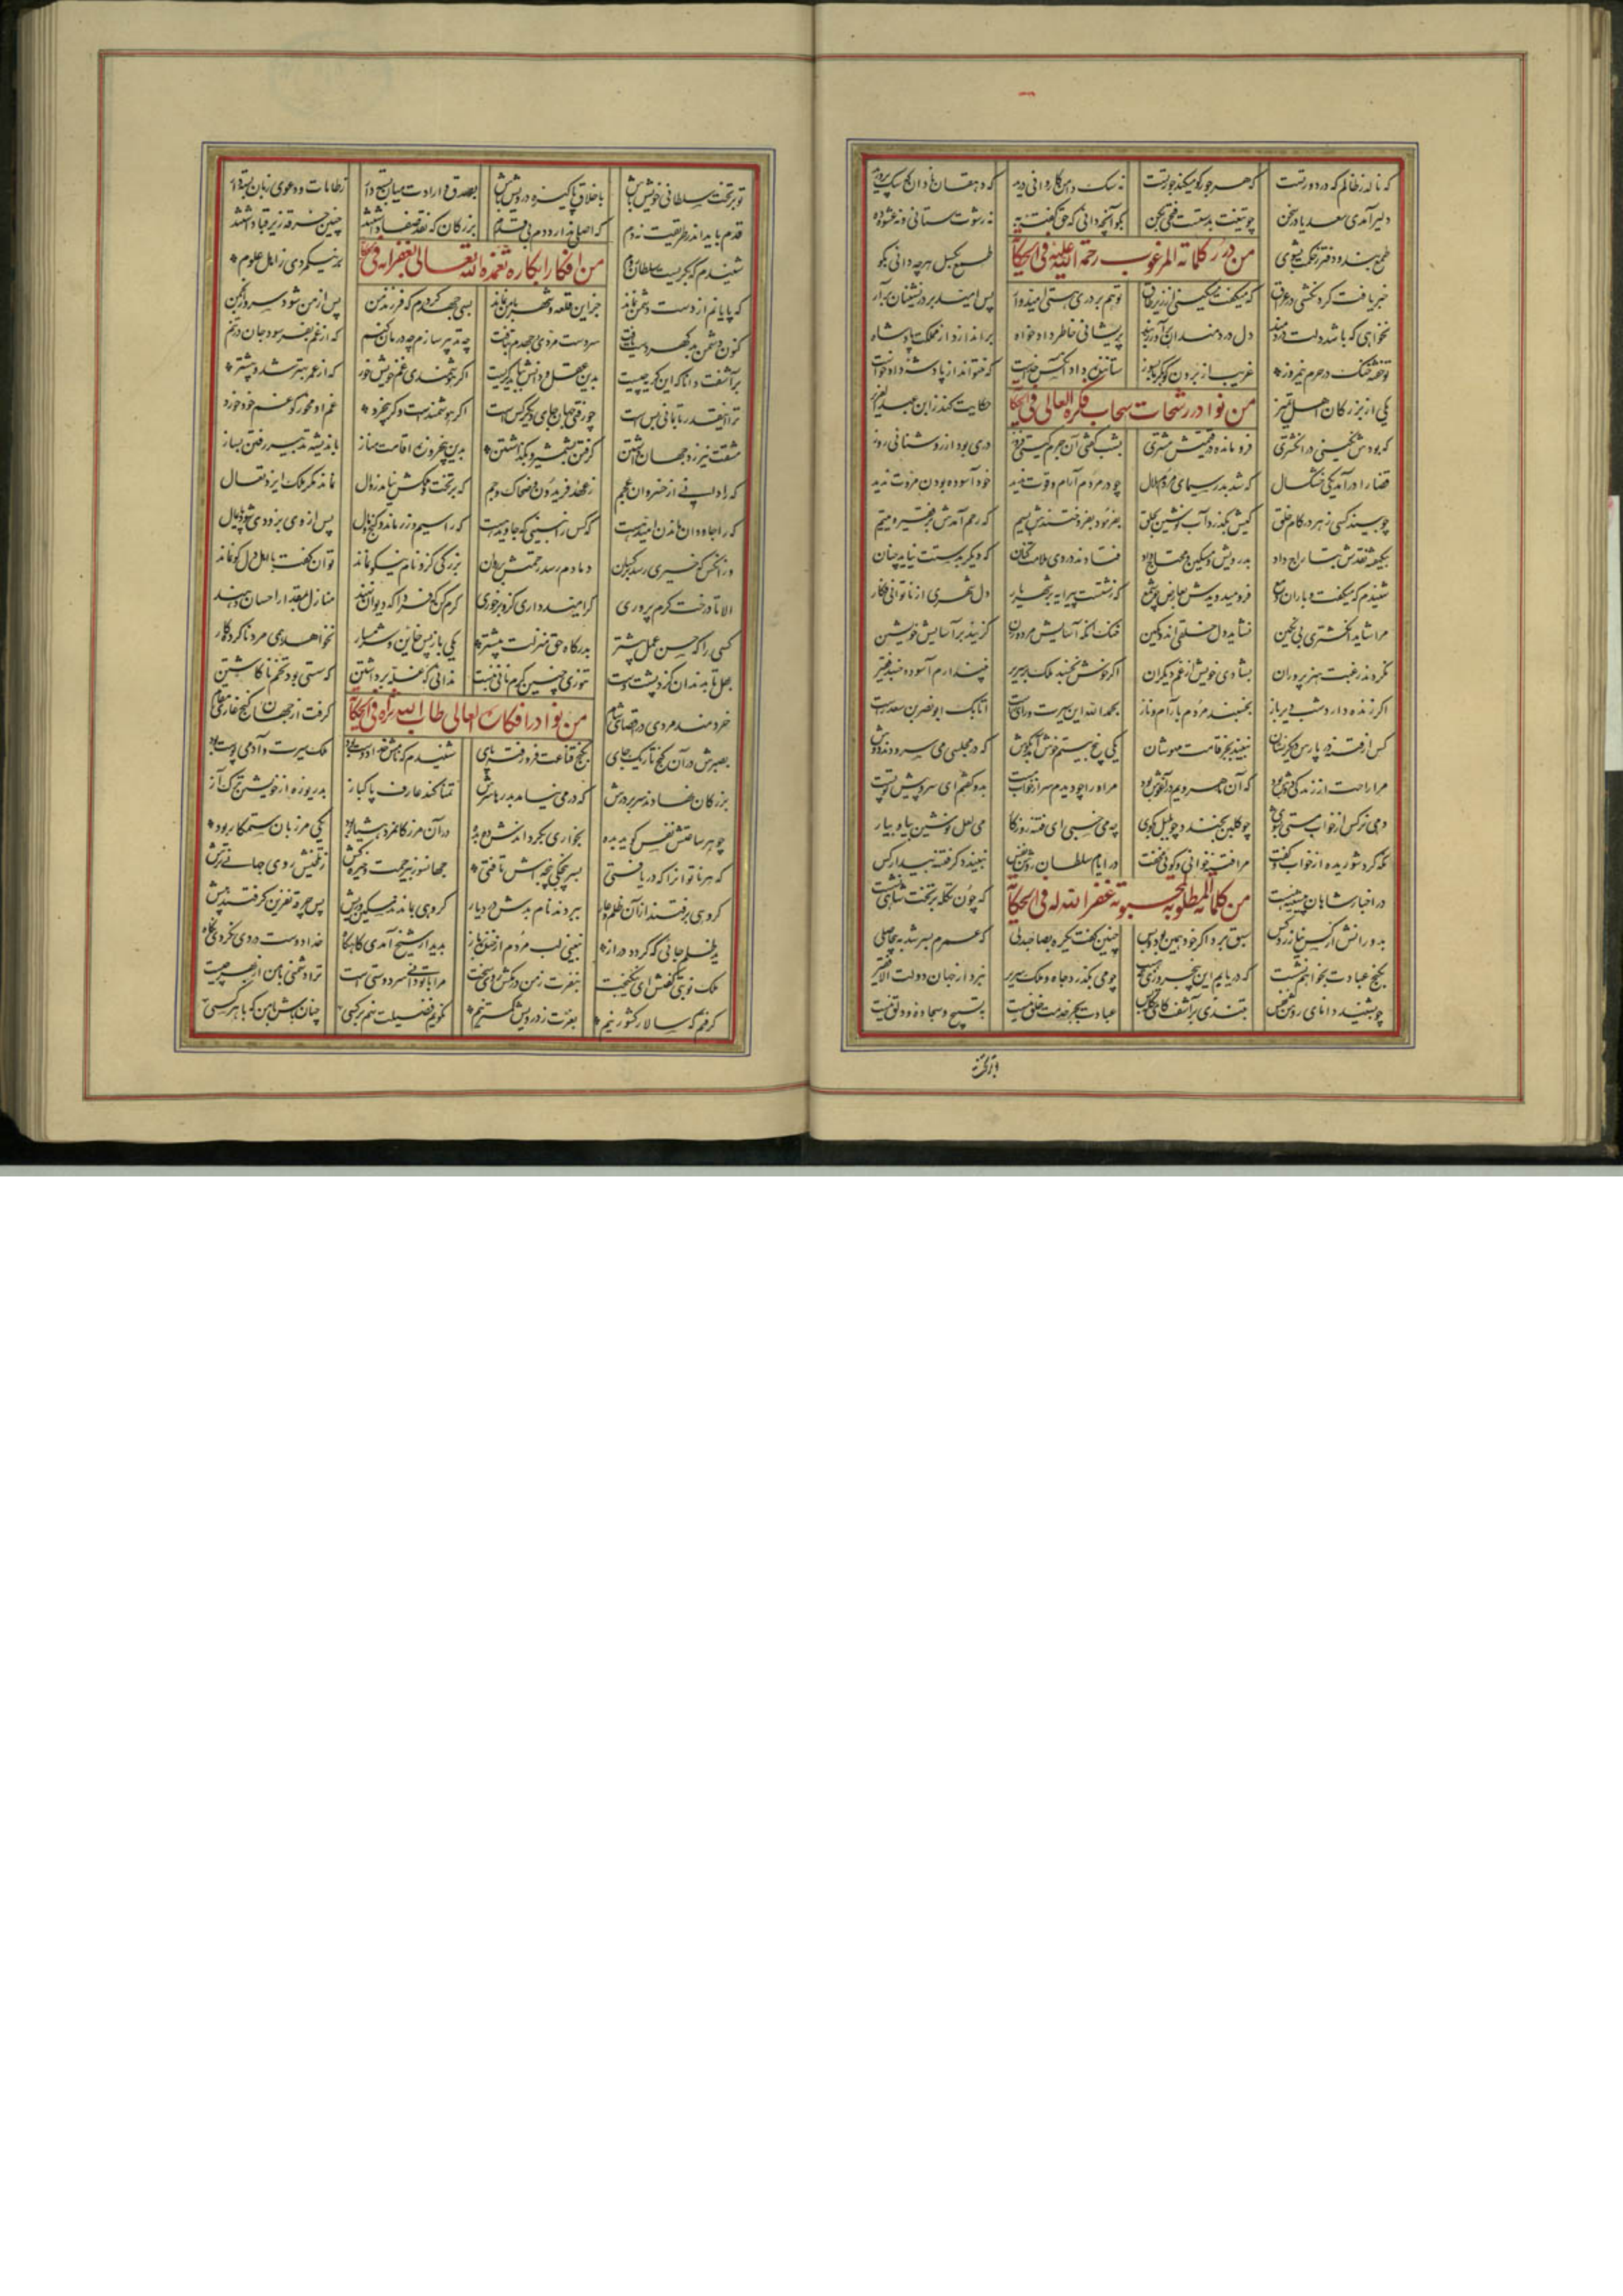 که نالد ز ظالم که در دور تست که هر جور کو میکند جور تست نه سگ دامن کاروانی درید که دهقان نادان که سگ پرورید
دلیر آمدی سعدیا در سخن چو تیغت بدستست فتحی بکن بگو آنچه دانی که حق گفته به نه رشوت ستانی و نه عشوه ده
طمع بند و دفتر ز حکمت بشوی طمع بگسل هرچه دانی بگو
من درر کلماته المرغوب رحمة الله علیه فی الحکایة
خبر یافت گردنکشی در عراق که میگفت مسکینی از زیر طاق تو هم بر دری هستی امیدوار پس امید بر درنشینان برآر
نخواهی که باشد دلت دردمند دل دردمندان برآور ز بند پریشانی خاطر دادخواه براندازد از مملکت پادشاه
تو خفته خنک در حرم نیمروز غریب از برون گو بگرما بسوز ستاننده داد آنکس خداست که نتواند از پادشه داد خواست
یکی از بزرگان اهل تمیز حکایت کند ز ابن عبدالعزیز
من نوادر رشحات سحاب فکره العالی فی الحکایة
که بودش نگینی در انگشتری فرو مانده در قیمتش مشتری بشب گفتی آن جرم گیتی فروز دری بود از روشنائی روز
قضا را درآمد یکی خشکسال که شد بدر سیمای مردم هلال چو در مردم آرام و قوت ندید خود آسوده بودن مروت ندید
چو بیند کسی زهر در کام خلق کیش بگذرد آب نوشین بحلق بفرمود بفروختندش بسیم که رحم آمدش بر فقیر و یتیم
بیکهفته نقدش بتاراج داد بدرویش و مسکین و محتاج داد فتادند در وی ملامت کنان که دیگر بدستت نیاید چنان
شنیدم که میگفت و باران دمع فرو میدویدش بعارض چو شمع که زشتست پیرایه بر شهریار دل شهری از ناتوانی فکار
مرا شاید انگشتری بی نگین نشاید دل خلقی اندوهگین خنک آنکه آسایش مرد و زن گزیند بر آسایش خویشتن
نکردند رغبت هنرپروران بشادی خویش از غم دیگران اگر خوش بخسبد ملک بر سریر نپندارم آسوده خسبد فقیر
اگر زنده دارد شب دیرباز بخسبند مردم بآرام و ناز بحمدالله این سیرت و راه راست اتابک ابوبکر بن سعد راست
کس از فتنه در پارس دیگر نشان نبیند بجز قامت مهوشان یکی پنج بیتم خوش آمد بگوش که در مجلسی می سرودند دوش
مرا راحت از زندگی دوش بود که آن ماهرویم در آغوش بود مر او را چو دیدم سر از خواب مست بدو گفتم ای سرو پیش تو پست
دمی نرگس از خواب مستی بشوی چو گلبن بخند و چو بلبل بگوی چه می خسبی ای فتنه روزگار می لعل نوشین بیا و بیار
نگه کرد شوریده از خواب و گفت مرا فتنه خوانی و گوئی مخفت در ایام سلطان روشن نفس نبیند دگر فتنه بیدار کس
در اخبار شاهان پیشینه هست که چون تکله بر تخت شاهی نشست
من کلماته المطلوبه غفر الله له فی الحکایة
بدورانش از کس نیازرد کس سبق برد اگر خود همین بود و بس چنین گفت یکره بصاحبدلی که عمرم بسر شد به بیحاصلی
بکنج عبادت بخواهم نشست که دریابم این پنجروزی که هست چو می بگذرد جاه و ملک و سریر نبرد از جهان دولت الا فقیر
چو بشنید دانای روشن نفس بتندی برآشفت کای تکله بس عبادت بجز خدمت خلق نیست بتسبیح و سجاده و دلق نیست
تو بر تخت
تو بر تخت سلطانی خویش باش باخلاق پاکیزه درویش باش بصدق و ارادت میان بسته دار ز طامات و دعوی زبان بسته دار
قدم باید اندر طریقت نه دم که اصلی ندارد دم بی قدم بزرگان که نقد صفا داشتند چنین خرقه زیر قبا داشتند
شنیدم که بگریست سلطان روم بر نیکمردی ز اهل علوم
من افکار ابکاره تغمده الله تعالی بغفرانه فی الحکایة
که پایانم از دست دشمن نماند جز این قلعه و شهر با من نماند بسی جهد کردم که فرزند من پس از من شود سرور انجمن
کنون دشمن بدگهر دست یافت سر دست مردی جهدم بتافت چه تدبیر سازم چه درمان کنم که از غم بفرسود جان در تنم
برآشفت دانا که این گریه چیست بدین عقل و دانش بباید گریست اگر هوشمندی غم خویش خور که از عمر بهتر شد و بیشتر
ترا اینقدر تا بمانی بس است چو رفتی جهان جای دیگر کس است اگر هوشمندست و گر بیخرد غم او مخور کو غم خود خورد
مشقت نیرزد جهان داشتن گرفتن بشمشیر و بگذاشتن بدین پنجروزه اقامت مناز باندیشه تدبیر رفتن بساز
که را دانی از خسروان عجم ز عهد فریدون و ضحاک و جم که بر تخت و ملکش نیامد زوال نماند مگر ملک ایزد تعال
که را جاودان ماندن امید هست که کس را نبینی که جاوید هست که را سیم و زر ماند و گنج و مال پس از وی بزودی شود پایمال
وز آنکس که خیری رسد بر کران دمادم رسد رحمتش بر روان بزرگی کزو نام نیکو نماند توان گفت با اهل دل کو نماند
الا تا درخت کرم پروری گر امید داری کزو بر خوری کرم کن که فردا که دیوان نهند منازل بمقدار احسان دهند
کسی را که حسن عمل بیشتر بدرگاه حق منزلت پیشتر یکی باز پس خائن و شرمسار نخواهد همی مرد ناکرده کار
بهل تا بدندان گزد پشت دست تنوری چنین گرم نانی نبست بدانی که غله برداشتن که سستی بود تخم ناکاشتن
خردمند مردی در اقصای شام گرفت از جهان کنج غاری مقام
من نوادر افکاره العالی طاب الله ثراه فی الحکایة
بصبرش در آن کنج تاریک جای بگنج قناعت فرو رفته پای شنیدم که نامش خدادوست بود ملک سیرت و آدمی پوست بود
بزرگان نهادند سر بر درش که در می نیامد بدرها سرش تمنا کند عارف پاکباز بدریوزه از خویشتن ترک آز
چو هر ساعتش نفس گوید بده بخواری بگرداندش ده بده در آن مرز کان مرد هشیار بود یکی مرزبان ستمکار بود
که هر ناتوان را که دریافتی بسرپنجگی پنجه اش تافتی جهانسوز و بیرحمت و خیره کش ز تلخیش روی جهانی ترش
گروهی برفتند از آن ظلم و عار ببردند نام بدش در دیار گروهی بماندند مسکین و ریش پس چرخه نفرین گرفتند پیش
ید ظلم جائی که گردد دراز نبینی لب مردم از خنده باز بدیدار شیخ آمدی گاه گاه خدادوست در وی نکردی نگاه
ملک نوبتی گفتش ای نیکبخت بنفرت ز من درمکش روی سخت مرا با تو دانی سر دوستی است ترا دشمنی با من از بهر چیست
گرفتم که سالار کشور نیم بعزت ز درویش کمتر نیم نگویم فضیلت نهم بر کسی چنان باش با من که با هر کسی